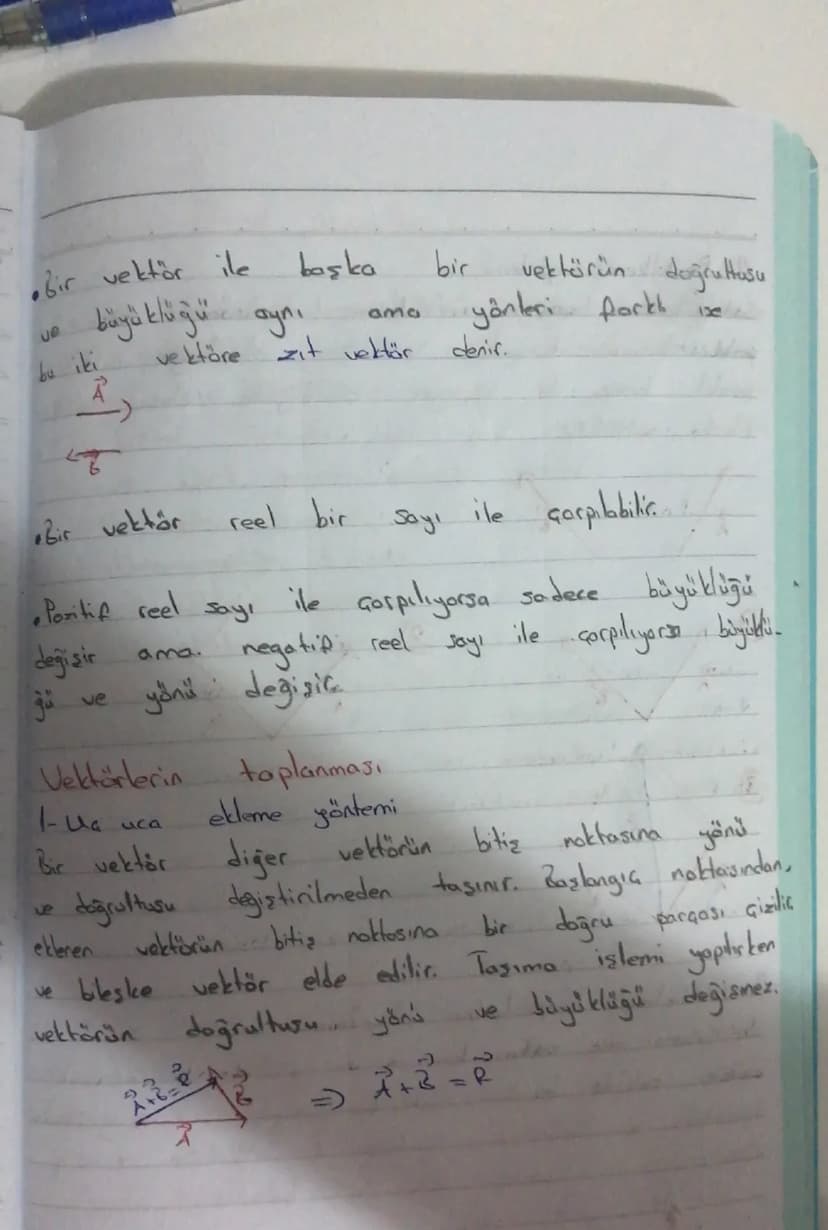 .Bir vektör ile başka bir vektörün doğrultusu
ve büyüklüğü aynı ama yönleri farklı ise
bu iki vektöre zıt vektör denir.
A
B
.Bir vektör reel bir sayı ile çarpılabilir.
.Pozitif reel sayı ile çarpılıyorsa sadece büyüklüğü
değişir ama negatif reel sayı ile çarpılıyorsa büyüklü-
ğü ve yönü değişir.
Vektörlerin toplanması
1-Uç uca ekleme yöntemi
Bir vektör diğer vektörün bitiş noktasına yönü
ve doğrultusu değiştirilmeden taşınır. Başlangıç noktasından,
eklenen vektörün bitiş noktasına bir doğru parçası çizilir
ve bleşke vektör elde edilir. Taşıma işlemi yapılırken
vektörün doğrultusu, yönü ve büyüklüğü değişmez.
A+B=R B ⇒ A+B=R
A